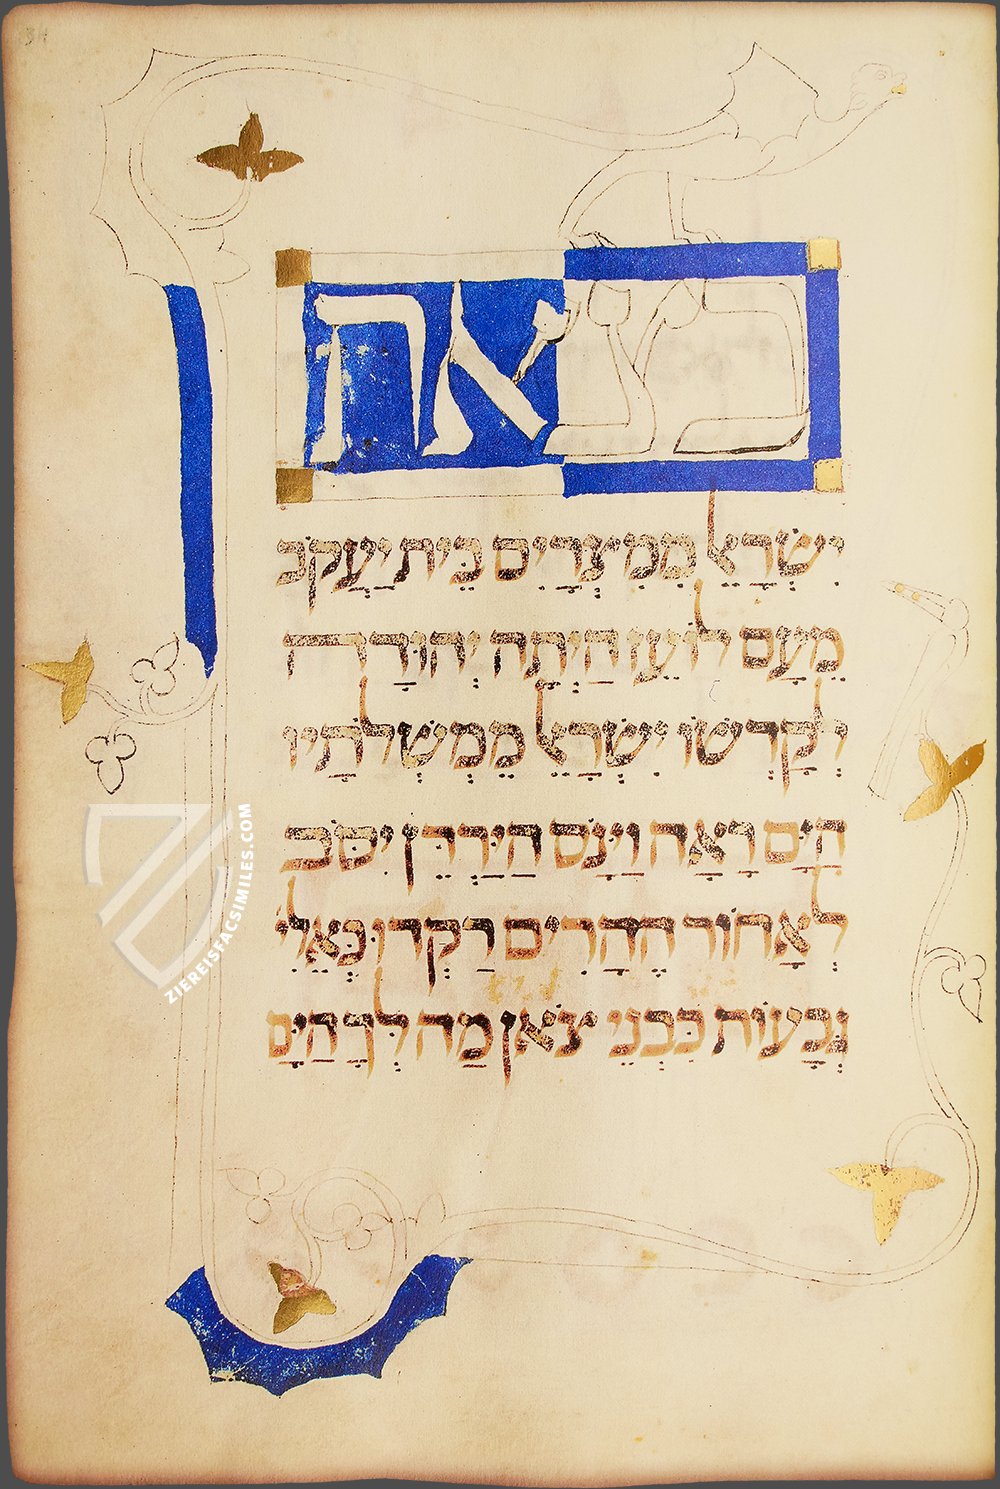 בצאת
יִשְׂרָאֵל מִמִּצְרַיִם בֵּית יַעֲקֹב
מֵעַם לוֹעֵז הָיְתָה יְהוּדָה
לְקָדְשׁוֹ יִשְׂרָאֵל מַמְשְׁלֹתָיו
הַיָּם רָאָה וַיָּנֹס הַיַּרְדֵּן יִסֹּב
לְאָחוֹר הֶהָרִים רָקְדוּ כְּאֵלִי
גְּבָעוֹת כִּבְנֵי צֹאן מַה לְּךָ הַיָּם
ZIEREISFACSIMILES.COM